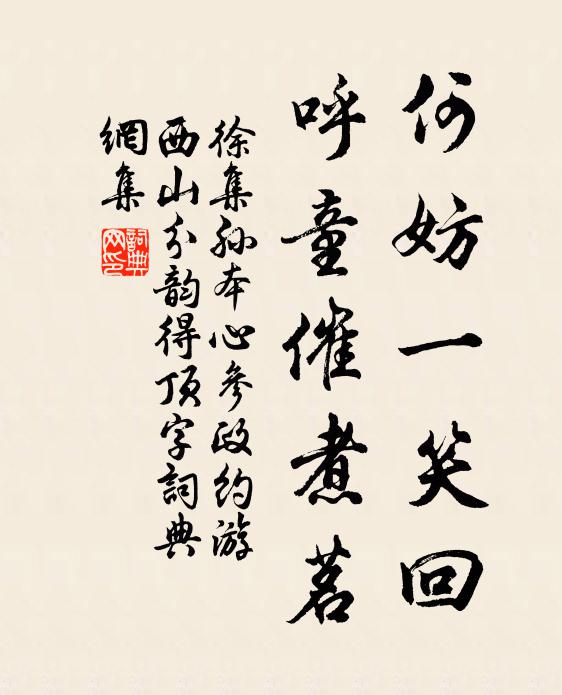 何妨一笑回
呼童催煮茗
徐集孙本心參政約游
西山分韵得頂字詞典
網集
詞典
网印